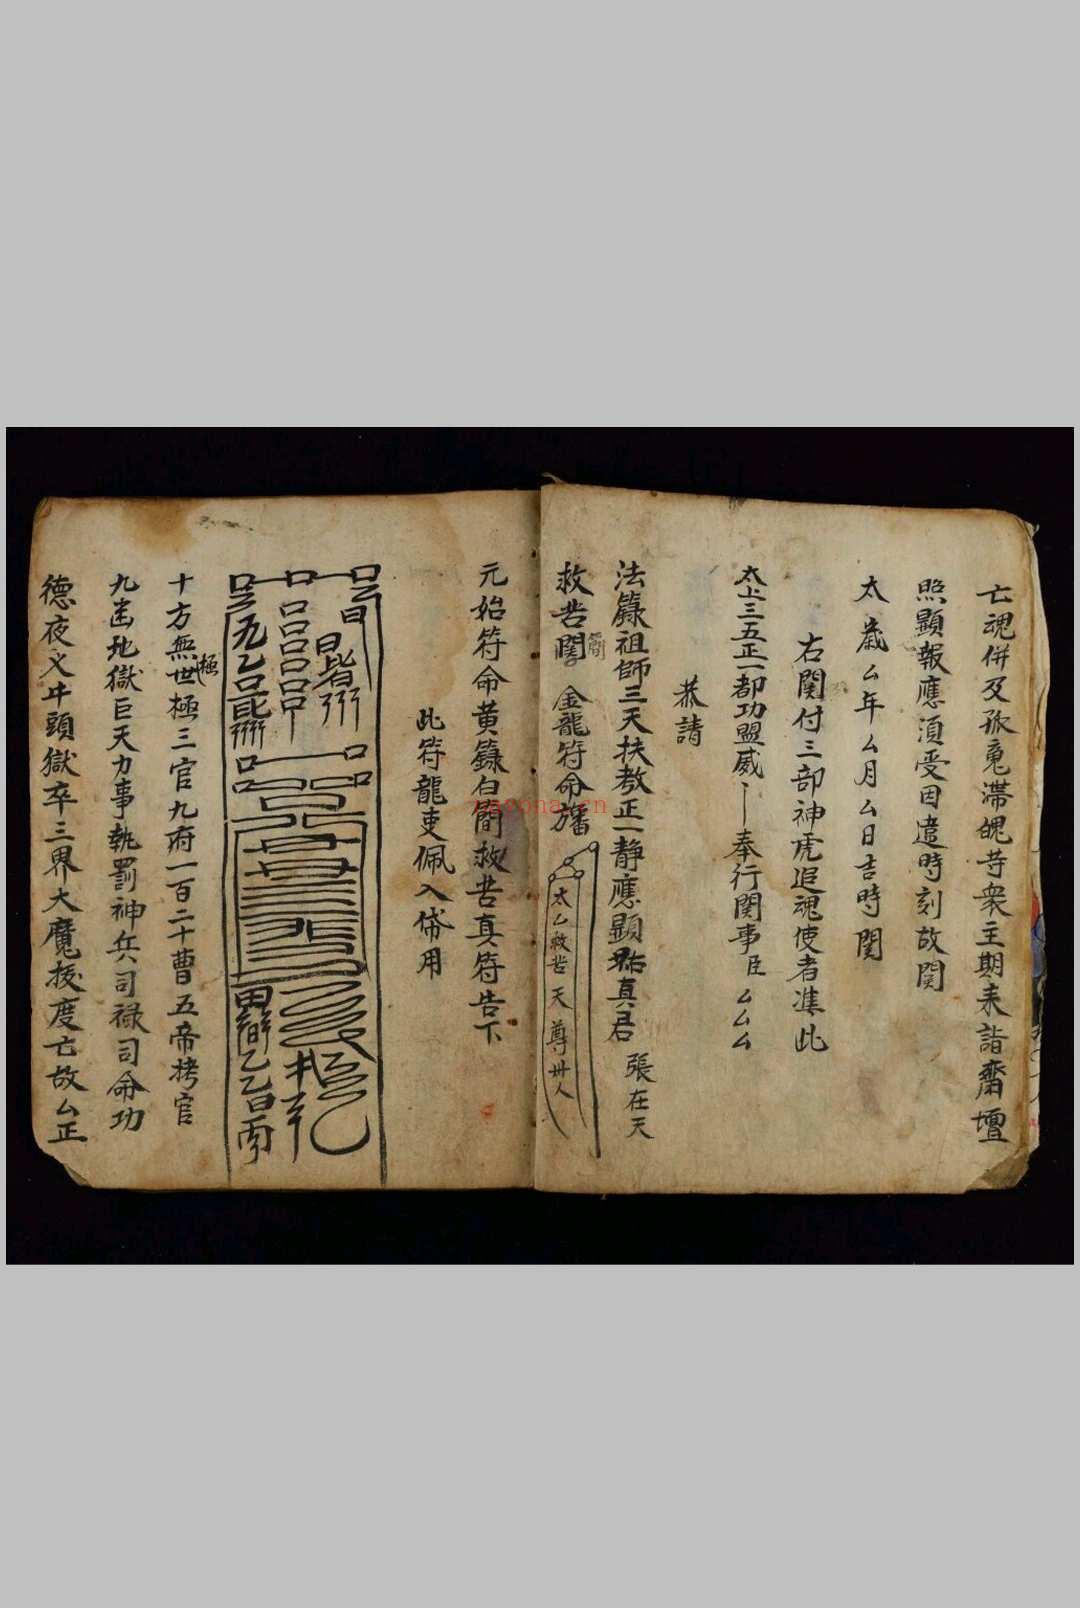 亡魂併及孤魂滯魄等衆主期来詣齋壇
照顯報應須受因遣時刻故関
太歲厶年厶月厶日吉時関
右関付三部神虎追魂使者准此
太上三五正一都功盟威丶丨奉行関事臣厶厶厶
恭請
法籙祖師三天扶教正一静應顯佑真君 張在天
救苦関 金龍符命旛
簡
太乙救苦天尊卅人
元始符命黄籙白簡救苦真符告下
此符龍吏佩入帒用
十方無世極三官九府一百二十曹五帝拷官
極
九幽地獄巨天力事執罰神兵司禄司命功
德夜叉牛頭獄卒三界大魔接度亡故厶正
nayona.cn